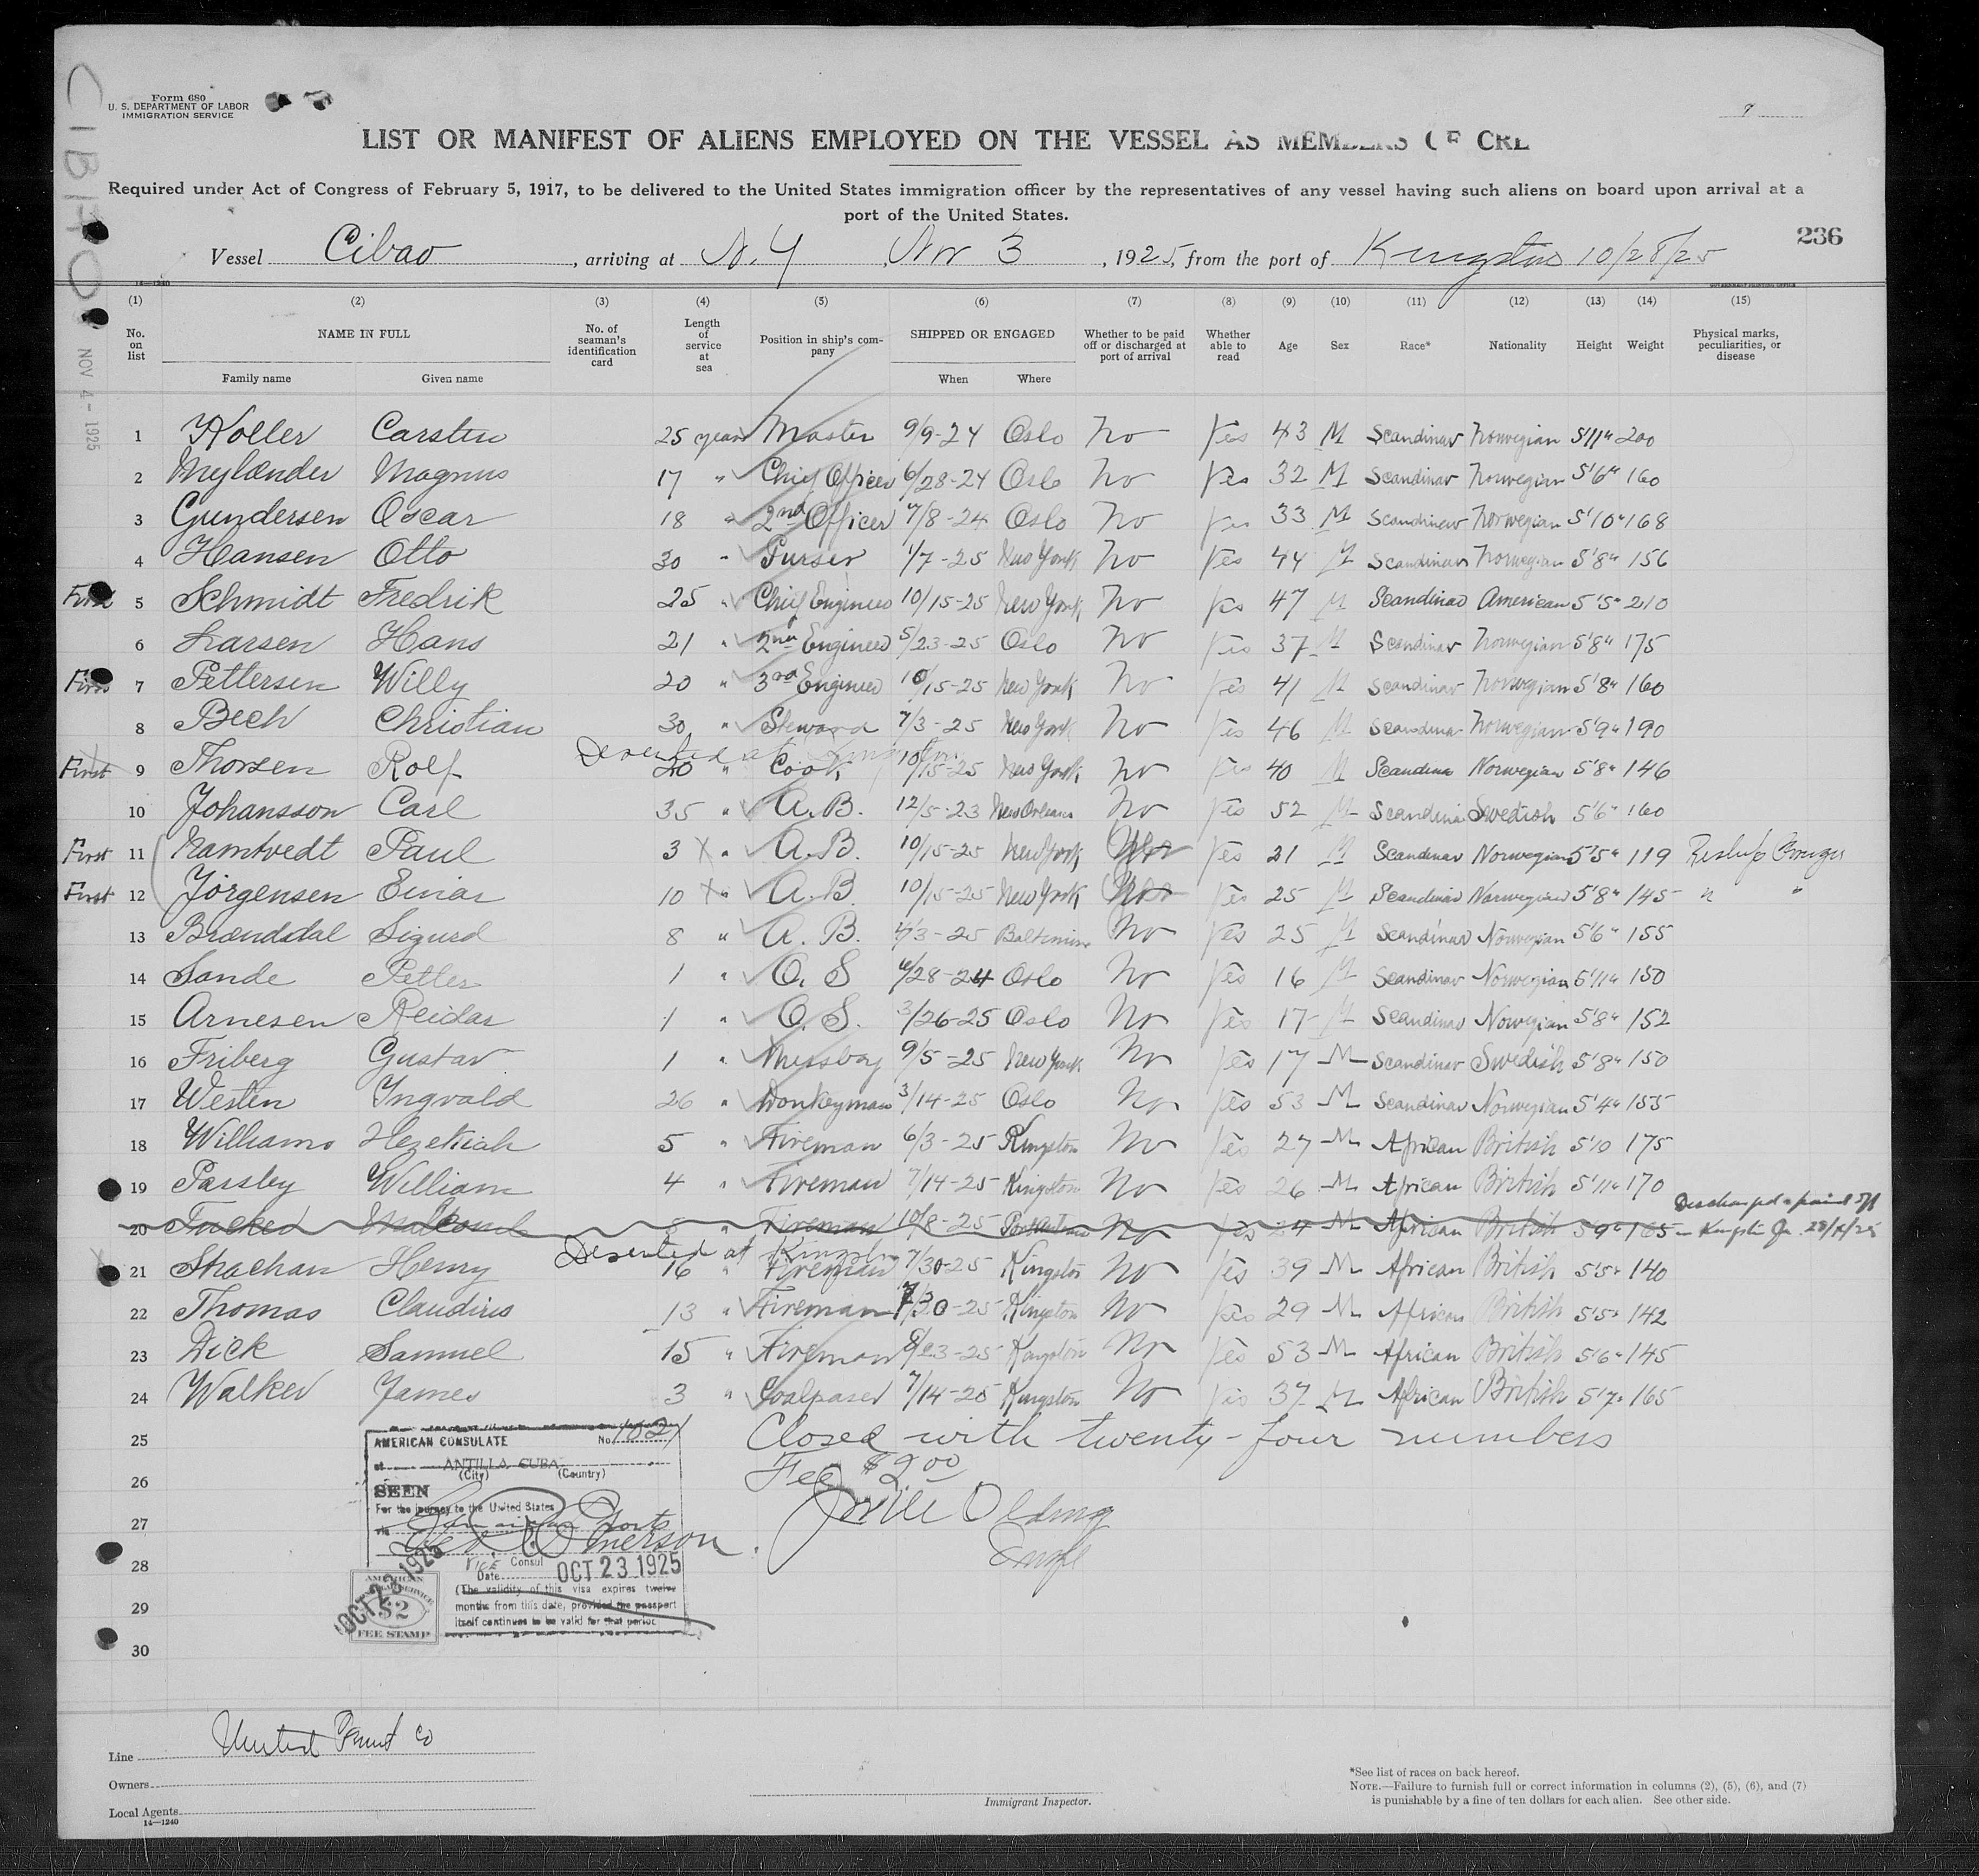 Form 680
U. S. DEPARTMENT OF LABOR
IMMIGRATION SERVICE
CIBAO
NOV 4 - 1925
LIST OR MANIFEST OF ALIENS EMPLOYED ON THE VESSEL AS MEMBERS OF CRE
Required under Act of Congress of February 5, 1917, to be delivered to the United States immigration officer by the representatives of any vessel having such aliens on board upon arrival at a
port of the United States.
236
Vessel Cibao, arriving at N.Y, Nov 3, 1925, from the port of Kingston 10/28/25
14—1240
(1) (2) (3) (4) (5) (6) (7) (8) (9) (10) (11) (12) (13) (14) (15)
No. on list NAME IN FULL Family name Given name No. of seaman's identification card Length of service at sea Position in ship's company SHIPPED OR ENGAGED When Where Whether to be paid off or discharged at port of arrival Whether able to read Age Sex Race* Nationality Height Weight Physical marks, peculiarities, or disease
1 Koller Carsten 25 years Master 9/9-24 Oslo No Yes 43 M Scandinav Norwegian 5'11" 200
2 Mylænder Magnus 17 " Chief Officer 6/28-24 Oslo No Yes 32 M Scandinav Norwegian 5'6" 160
3 Gundersen Oscar 18 " 2nd Officer 7/8-24 Oslo No Yes 33 M Scandinav Norwegian 5'10" 168
4 Hansen Otto 30 " Purser 1/7-25 New York No Yes 44 M Scandinav Norwegian 5'8" 156
First 5 Schmidt Fredrik 25 " Chief Engineer 10/15-25 New York No Yes 47 M Scandinav American 5'5" 210
6 Larsen Hans 21 " 2nd Engineer 5/23-25 Oslo No Yes 37 M Scandinav Norwegian 5'8" 175
First 7 Pettersen Willy 20 " 3rd Engineer 10/15-25 New York No Yes 41 M Scandinav Norwegian 5'8" 160
8 Bech Christian 30 " Steward 7/3-25 New York No Yes 46 M Scandina Norwegian 5'9" 190
Deserted at Kingston
First 9 Thorsen Rolf 20 " Cook 10/15-25 New York No Yes 40 M Scandina Norwegian 5'8" 146
10 Johansson Carl 35 " A.B. 12/5-23 New Orleans No Yes 52 M Scandina Swedish 5'6" 160
First 11 Namtvedt Paul 3 " A.B. 10/15-25 New York Yes 21 M Scandinav Norwegian 5'5" 119
First 12 Jörgensen Einar 10 " A.B. 10/15-25 New York Yes 25 M Scandinav Norwegian 5'8" 145 " "
13 Brænddal Sigurd 8 " A. B. 4/3-25 Baltimore No Yes 25 M Scandinav Norwegian 5'6" 155
14 Sande Petter 1 " O. S 6/28-24 Oslo No Yes 16 M Scandinav Norwegian 5'11" 150
15 Arnesen Reidar 1 " O. S. 3/26-25 Oslo No Yes 17 M Scandinav Norwegian 5'8" 152
16 Friberg Gustav 1 " Messboy 9/5-25 New York No Yes 17 M Scandinav Swedish 5'8" 150
17 Westen Ingvald 26 " Donkeyman 3/14-25 Oslo No Yes 53 M Scandinav Norwegian 5'4" 155
18 Williams Hezekiah 5 " Fireman 6/3-25 Kingston No Yes 27 M African British 5'10 175
19 Passley William 4 " Fireman 7/14-25 Kingston No Yes 26 M African British 5'11" 170
Discharged & paid off
20 Tucker " Fireman 10/8-25 No Yes 24 M African British 5'9" 165 Kingston Ja.
Deserted at Kingston
21 Strachan Henry 16 " Fireman 7/30-25 Kingston No Yes 39 M African British 5'5" 140
22 Thomas Claudius 13 " Fireman 7/30-25 Kingston No Yes 29 M African British 5'5" 142
23 Dick Samuel 15 " Fireman Kingston No Yes 53 M African British 5'6" 145
24 Walker James 3 " Coalpaser 7/14-25 Kingston No Yes 37 M African British 5'7" 165
25 Closed with twenty-four numbers
26 Fee $2.00
27
28
29
30
AMERICAN CONSULATE No. 1621
at ANTILLA, CUBA
(City) (Country)
SEEN
For the journey to the United States
via
Vice Consul
Date OCT 23 1925
(The validity of this visa expires twelve
months from this date, provided the passport
itself continues to be valid for that period.
OCT 23 1925
AMERICAN
$2
FEE STAMP
Line United Fruit Co
Owners
Local Agents
14—1240
Immigrant Inspector.
*See list of races on back hereof.
NOTE.—Failure to furnish full or correct information in columns (2), (5), (6), and (7)
is punishable by a fine of ten dollars for each alien. See other side.